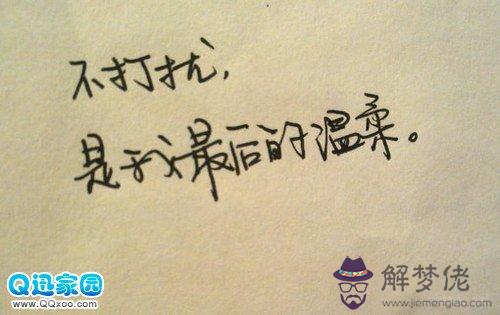 不打扰，
是我最后的温柔。
Q迅家园
www.QQxoo.com
解梦佬
www.jiemenglao.com